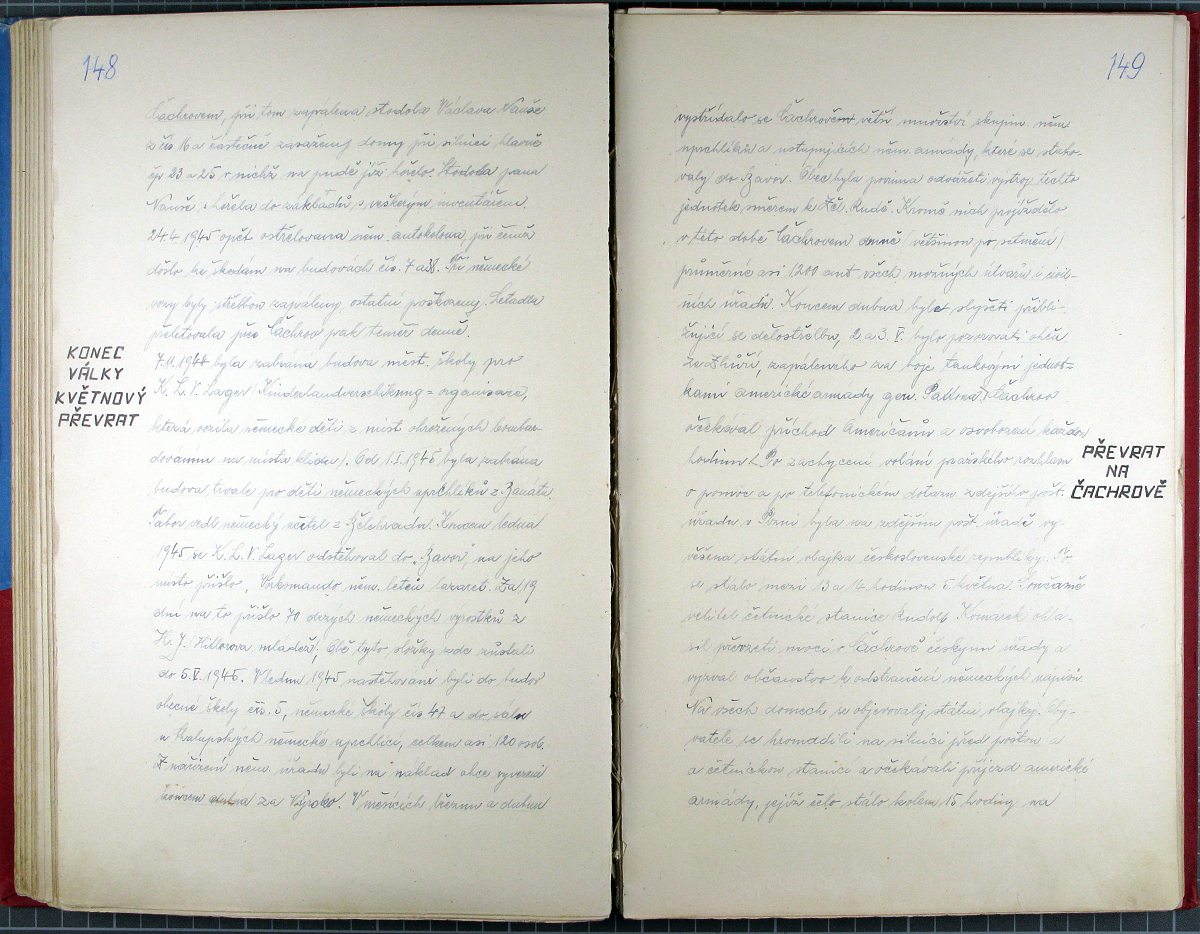 148
Čachrovem, při tom zapálena stodola Václava Nauše
z čís 16 a částečně zasaženy domy při silnici hlavně
čp 23 a 25 v nichž na půdě již hořelo. Stodola pana
Nauše, shořela do základů, s veškerým inventářem.
24.4.1945 opět ostřelována něm. autokolona, při čemž
došlo ke škodám na budovách čís. 7 a 38. Tři německé
vozy byly střelbou zapáleny, ostatní poškozeny. Letadla
přeletovala přes Čachrov pak téměř denně.
KONEC
VÁLKY
KVĚTNOVÝ
PŘEVRAT
7.11.1944 byla zabrána budova měst. školy pro
K. L. V. Lager /Kinderlandverschikung = organisace,
která vozila německé děti z míst ohrožených bombar-
dováním na místa klidu/. Od 1.I.1945 byla zabrána
budova trvale pro děti německých uprchlíků z Banátu.
Tábor vedl německý učitel z Bělehradu. Koncem ledna
1945 se K. L. V. Lager odstěhoval do "Javor", na jeho
místo přišlo, Vorkomando něm. letců lazaret. Za 19
dní na to přišlo 70 drzých německých výrostků z
H. J. /Hitlerova mládež/. Obě tyto složky zde zůstali
do 5.V.1945. V lednu 1945 nastěhováni byli do budov
obecné školy čís. 5, německé školy čís 47 a do sálu
u Chalupských němečtí uprchlíci, celkem asi 120 osob.
Z nařízení něm. úřadu byli na náklad obce vyvezeni
koncem dubna za Vysoko. V měsících březnu a dubnu
149
vystřídalo se Čachrovem větší množství skupin něm.
uprchlíků a ustupujících něm. armády, které se stěho-
valy do Bavor. Obec byla povinna odvážeti výstroj těchto
jednotek směrem k Žel. Rudě. Kromě nich projíždělo
v této době Čachrovem denně /většinou po setmění/
průměrně asi 1200 aut všech možných útvarů i civil-
ních úřadů. Koncem dubna bylo slyšeti přibli-
žující se dělostřelbu, 2 a 3. V. bylo pozorovati oheň
ze Zhůří, zapáleného za boje tankovými jednot-
kami americké armády gen. Pattona. Čachrov
očekával příchod Američanů a osvobození každou
hodinu. Po zachycení volání pražského rozhlasu
PŘEVRAT
NA
ČACHROVĚ
o pomoc a po telefonickém dotazu zdejšího pošt.
úřadu v Plzni byla na zdejším pošt. úřadě vy-
věšena státní vlajka československé republiky. To
se stalo mezi 13 a 14 hodinou 5. května. Současně
velitel četnické stanice Rudolf Komárek ohlá-
sil převzetí moci v Čachrově českými úřady a
vyzval občanstvo k odstranění německých nápisů.
Na všech domech se objevovaly státní vlajky. Oby-
vatelé se hromadili na silnici před poštou a
a četnickou stanicí a očekávali příjezd americké
armády, jejíž čelo stálo kolem 15 hodiny na